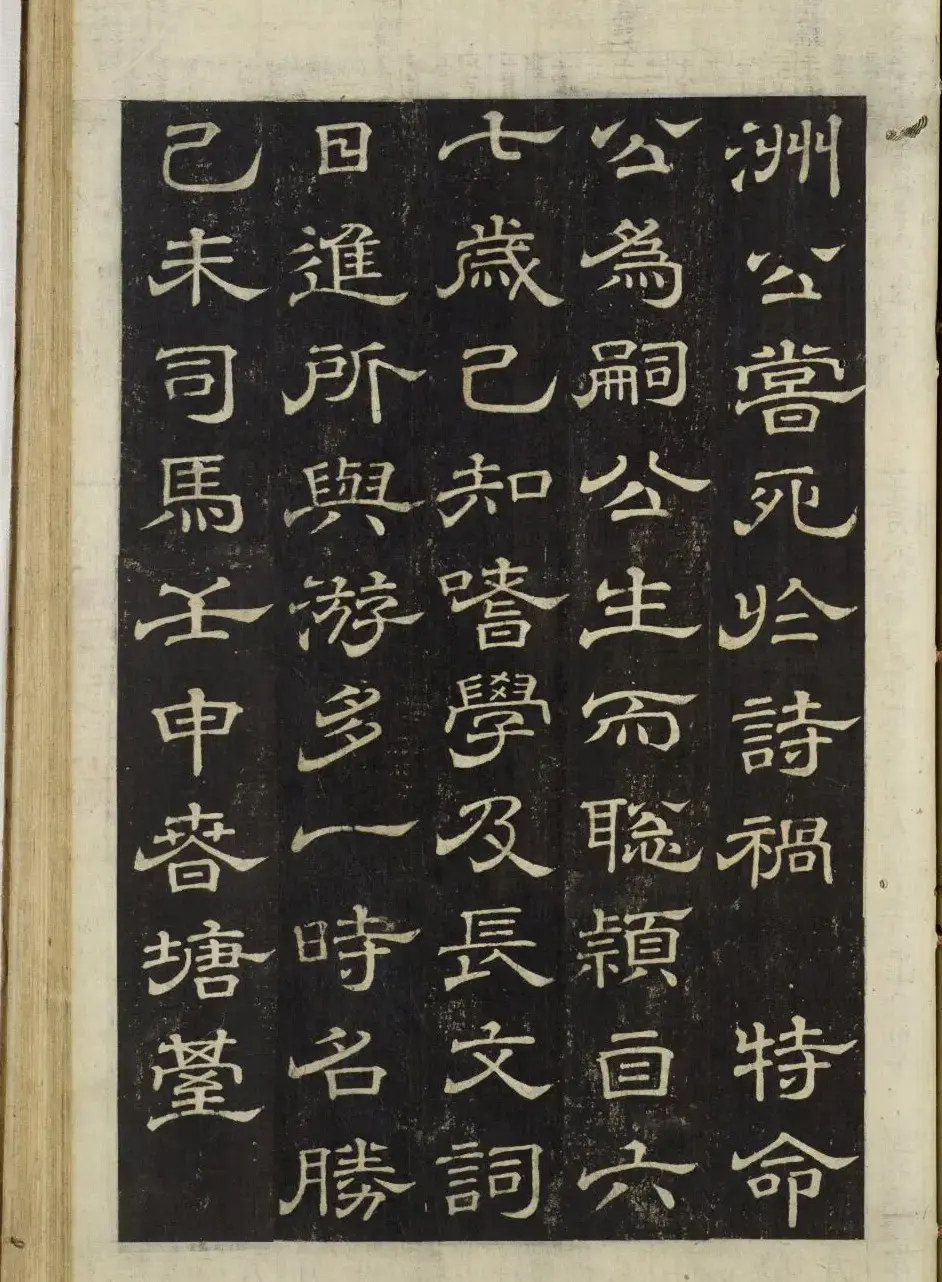 洲公嘗死於詩禍特命
公為嗣公生而聡穎自六
七歲已知嗜學及長文詞
日進所與游多一時名勝
己未司馬壬申春塘臺